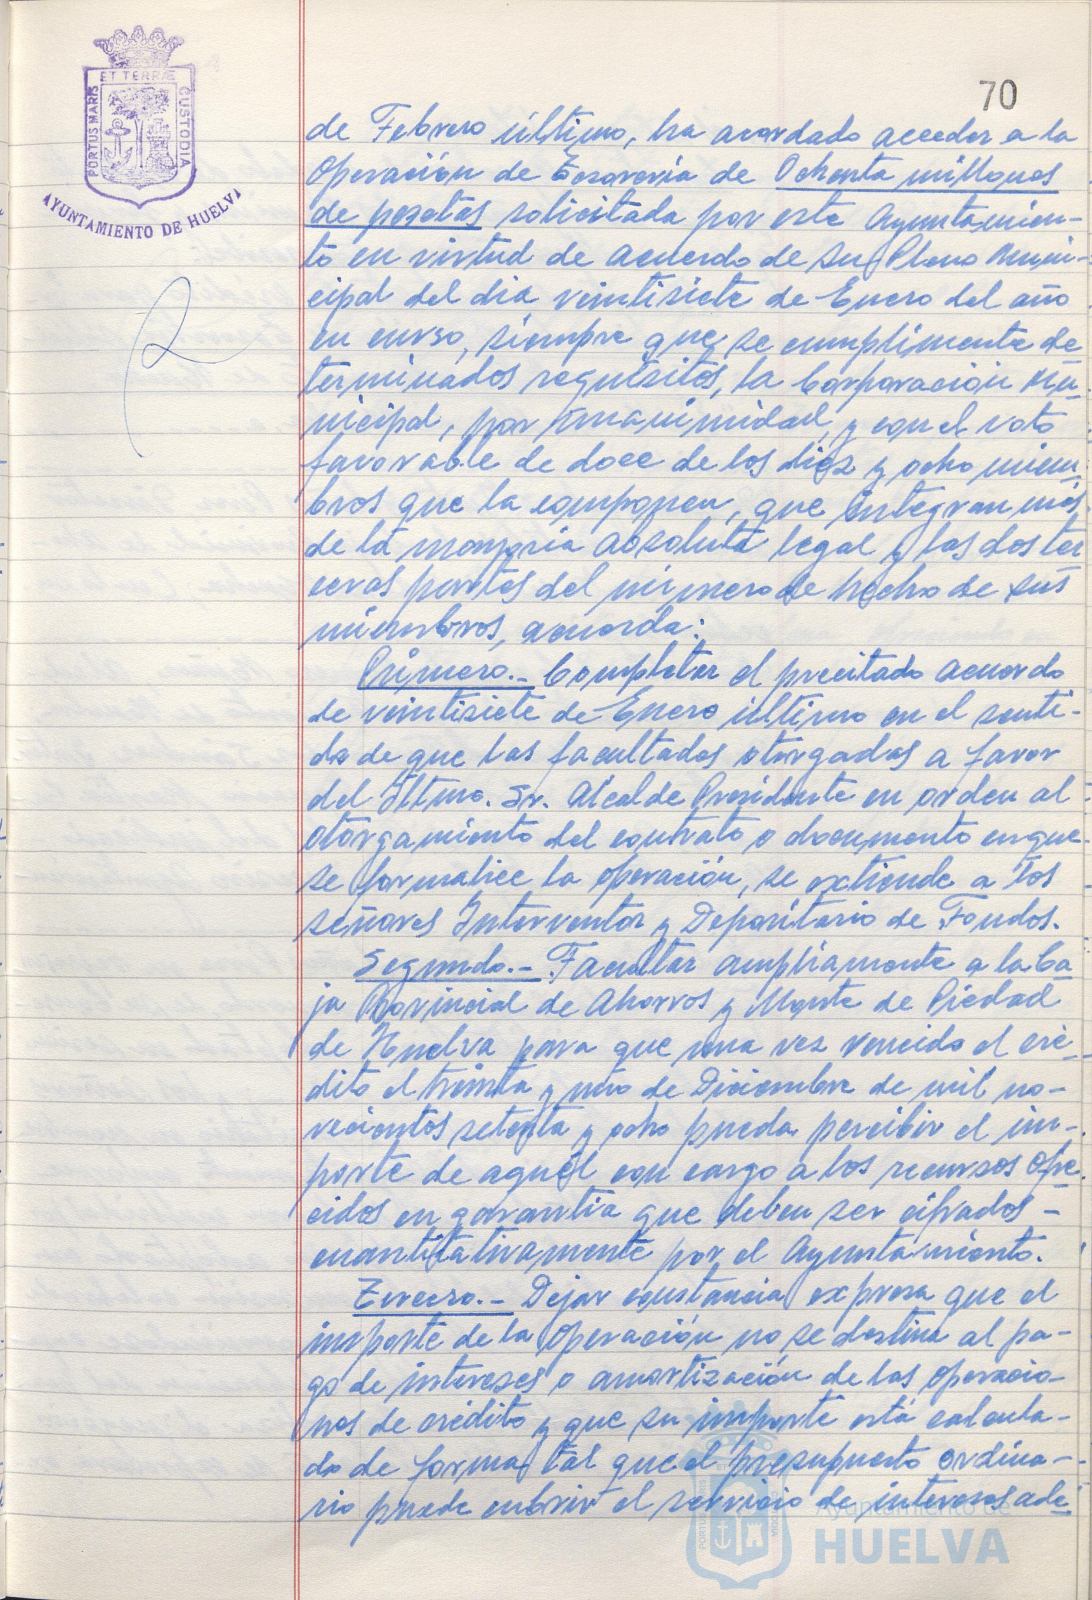 70
ET TERRÆ
PORTUS MARIS
CUSTODIA
AYUNTAMIENTO DE HUELVA
de Febrero último, ha acordado acceder a la
Operación de Tesorería de Ochenta millones
de pesetas solicitada por este Ayuntamien-
to en virtud de acuerdo de su Pleno Muni-
cipal del dia veintisiete de Enero del año
en curso, siempre que se cumplimente de
terminados requisitos, la Corporación Mu-
nicipal, por unanimidad, y con el voto
favorable de doce de los diez y ocho miem-
bros que la componen, que integran mas
de la mayoria absoluta legal y las dos ter
ceras partes del número de hecho de sus
miembros, acuerda:
Primero.- Completar el precitado acuerdo
de veintisiete de Enero último en el senti-
do de que las facultades otorgadas a favor
del Iltmo. Sr. Alcalde Presidente en orden al
otorgamiento del contrato o documento en que
se formalice la operación, se extiende a los
señores Interventor y Depositario de Fondos.
Segundo.- Facultar ampliamente a la Ca
ja Provincial de Ahorros y Monte de Piedad
de Huelva para que una vez vencido el cré-
dito el treinta y uno de Diciembre de mil no-
vecientos setenta y ocho pueda percibir el im-
porte de aquél con cargo a los recursos ofre
cidos en garantia que deben ser cifrados -
cuantitativamente por el Ayuntamiento.
Tercero.- Dejar constancia expresa que el
importe de la Operación no se destina al pa-
go de intereses o amortización de las operacio-
nes de crédito y que su importe está calcula-
do de forma tal que el presupuesto ordina-
rio puede cubrir el servicio de intereses ade
Ayuntamiento de
HUELVA